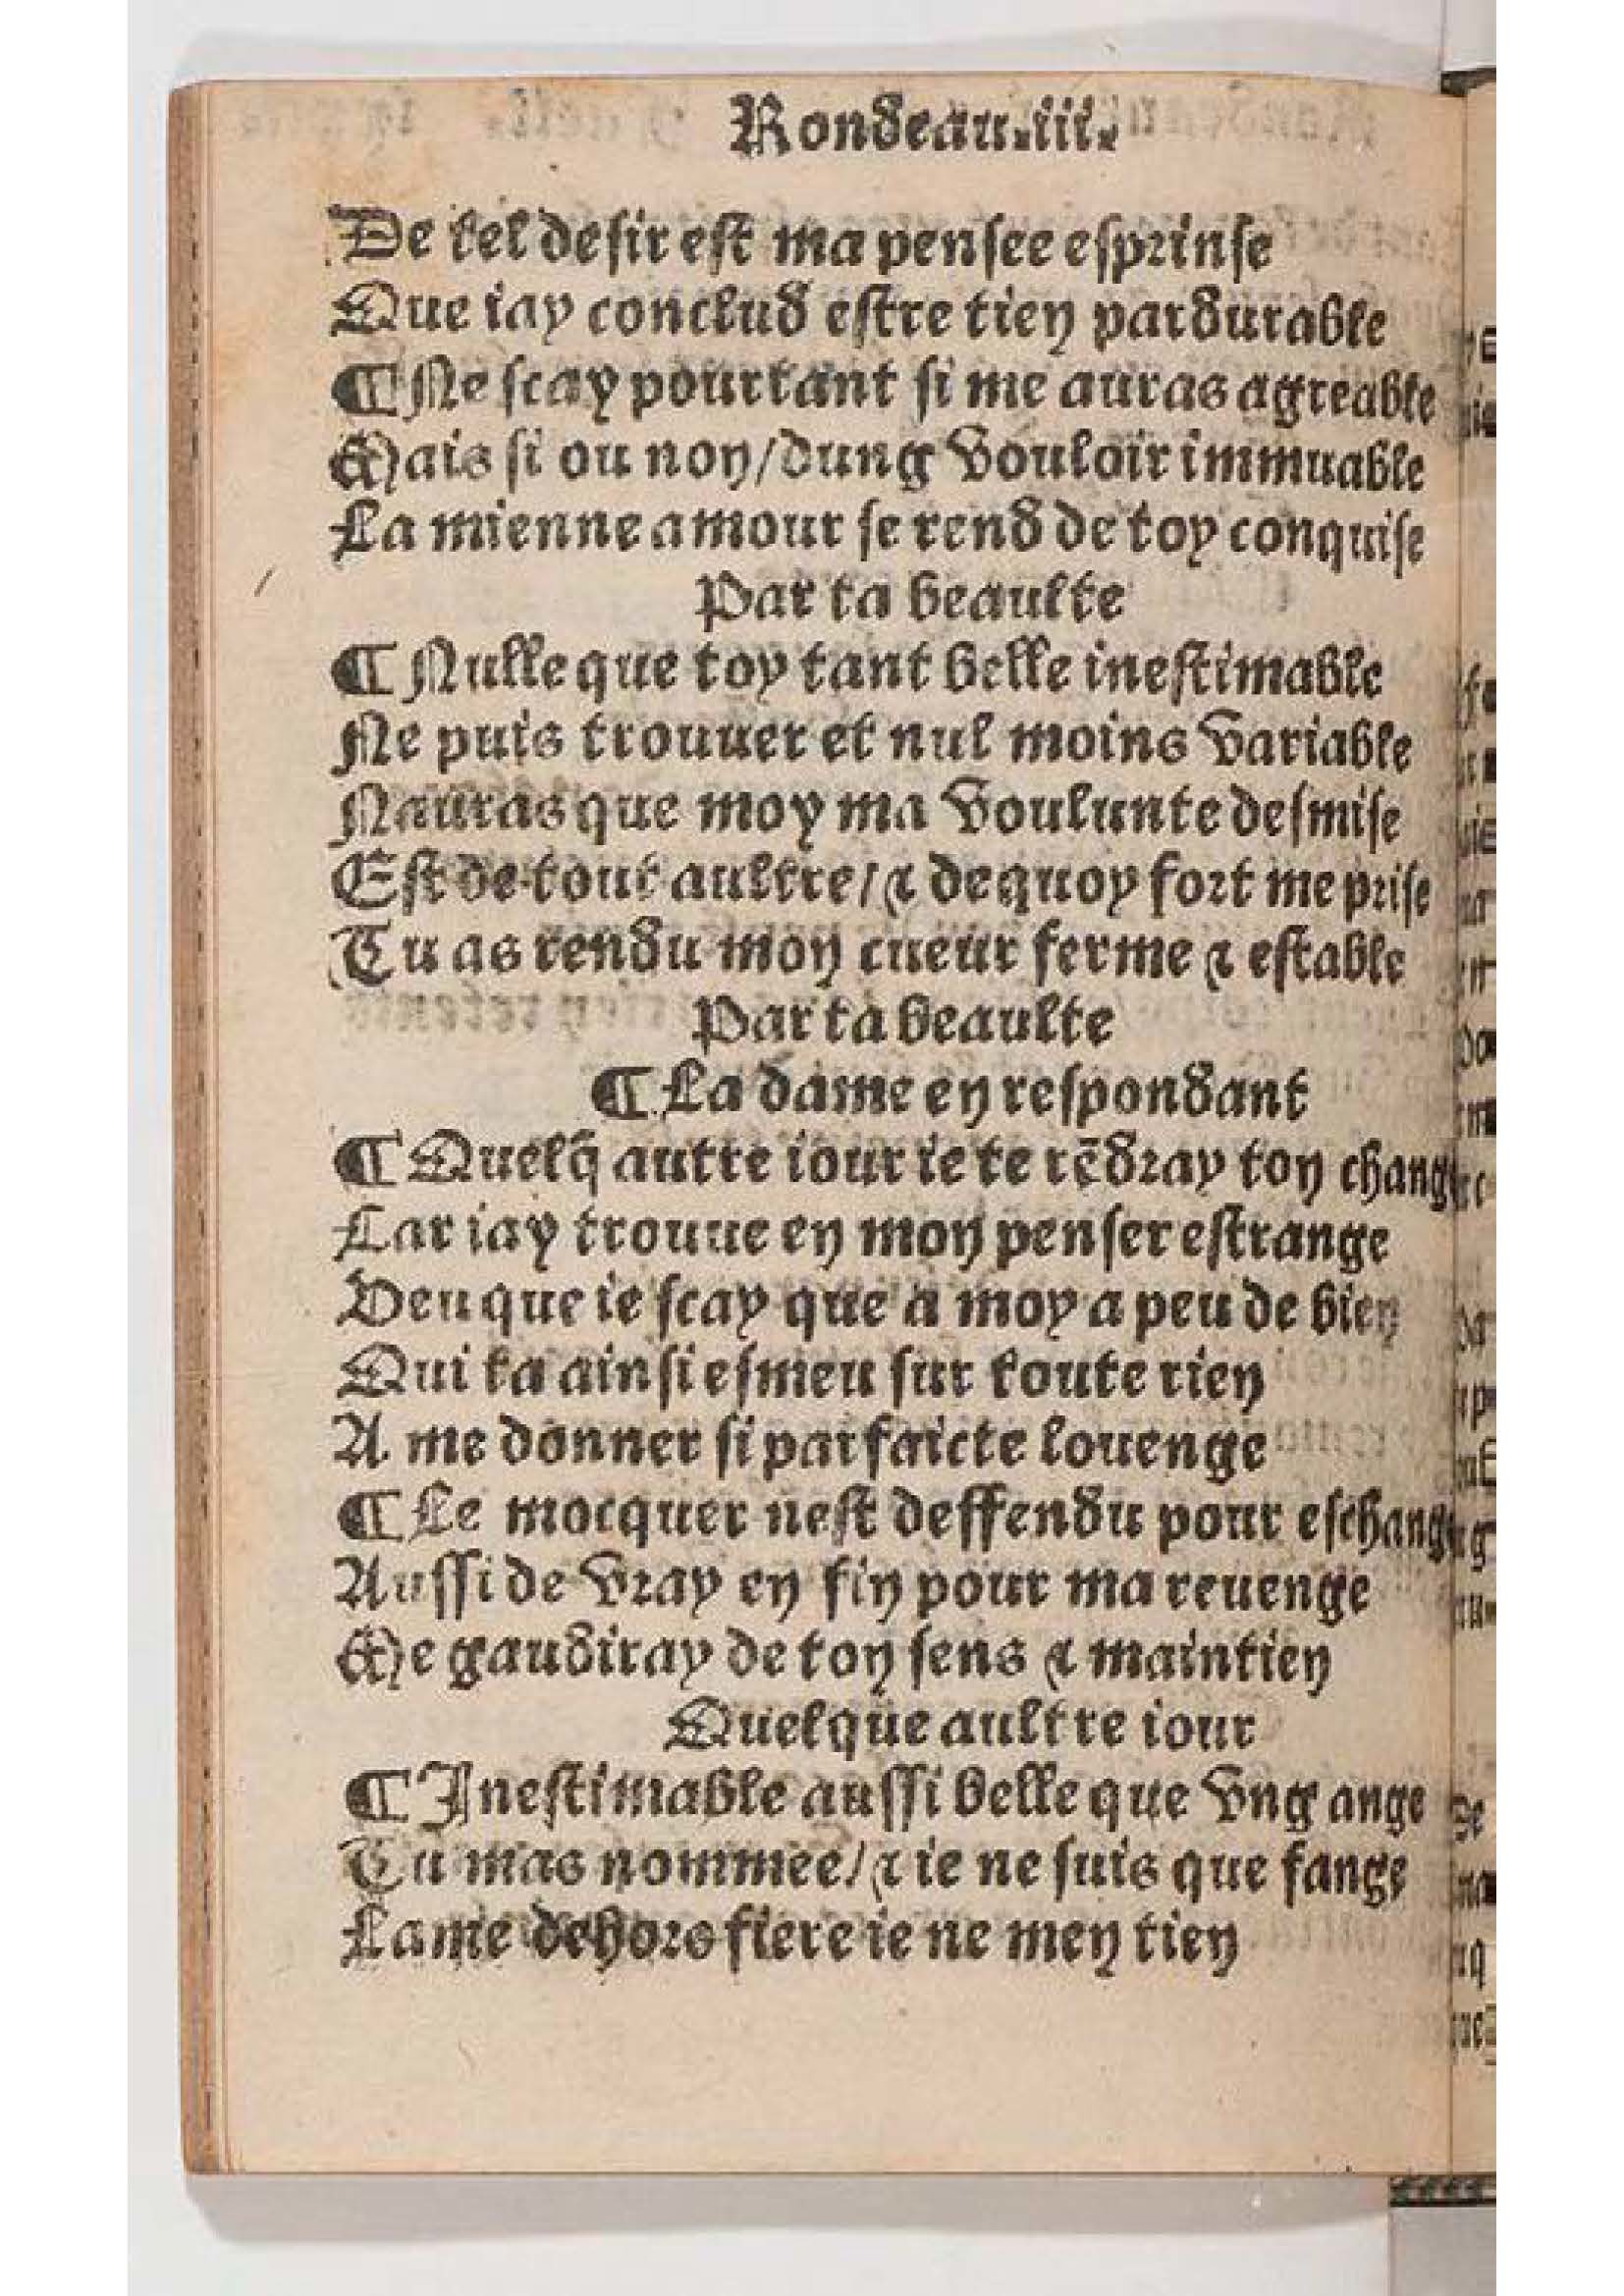 Rondeau.iii.
De tel desir est ma pensee esprinse
Que iay conclud estre tien pardurable
¶ Ne scay pourtant si me auras agreable
Mais si ou non/dung vouloir immuable
La mienne amour se rend de toy conquise
Par ta beaulte
¶ Nulle que toy tant belle inestimable
Ne puis trouuer et nul moins variable
Nauras que moy ma voulunte desmise
Est de tout aultre/& de quoy fort me prise
Tu as rendu mon cueur ferme & estable
Par ta beaulte
¶ La dame en respondant
¶ Quelq̄ autre iour ie te rēdray ton change
Car iay trouue en mon penser estrange
Veu que ie scay que a moy a peu de bien
Qui ta ainsi esmeu sur toute rien
A me donner si parfaicte louenge
¶ Le mocquer nest deffendu pour eschange
Aussi de vray en fin pour ma reuenge
Me gaudiray de ton sens & maintien
Quelque aultre iour
¶ Inestimable aussi belle que vng ange
Tu mas nommee/& ie ne suis que fange
Lame dehors fiere ie ne men tien